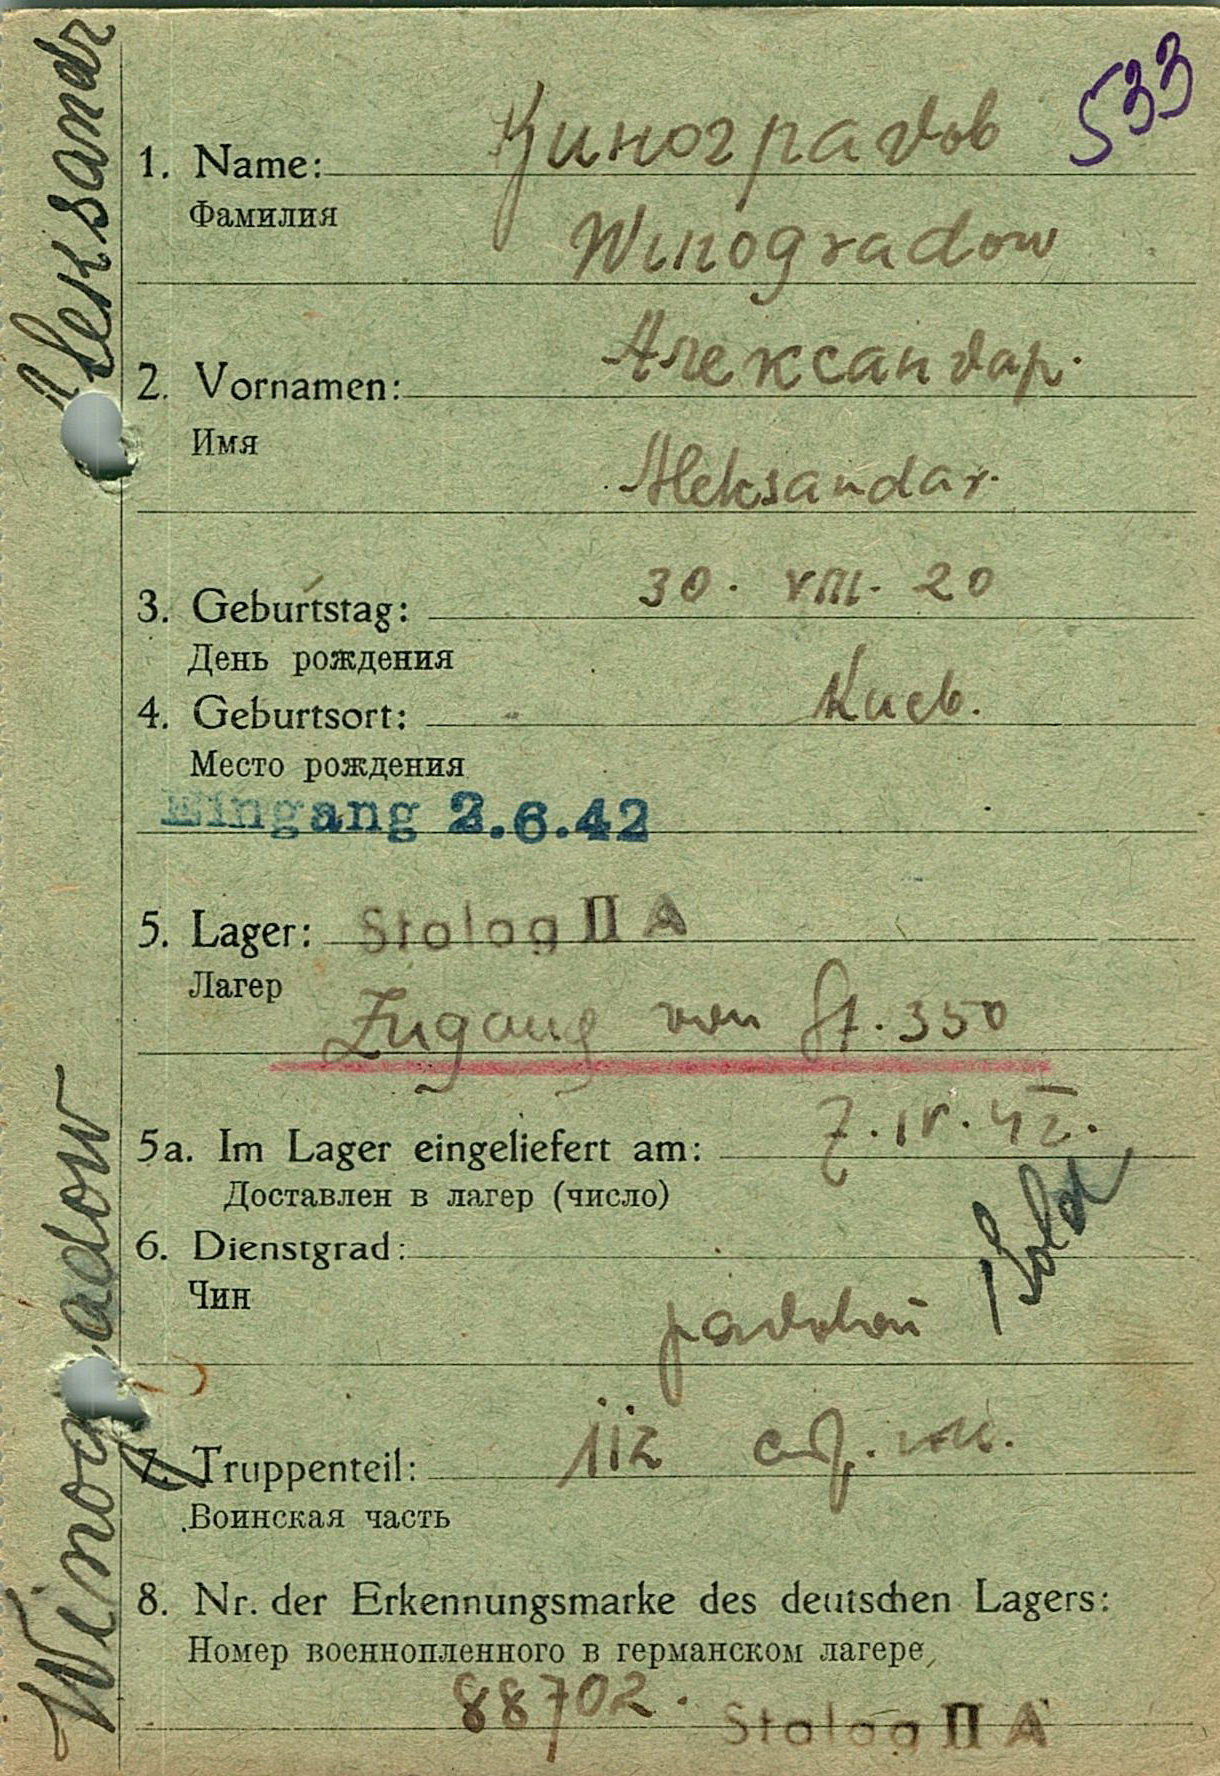 533
1. Name: Виноградов
Фамилия
Winogradow
2. Vornamen: Александар.
Имя
Aleksandar.
3. Geburtstag: 30. VIII. 20
День рождения
4. Geburtsort: Киев.
Место рождения
Eingang 2.6.42
5. Lager: Stalag II A
Лагер
Zugang von St. 350
5a. Im Lager eingeliefert am: 7. IV. 42.
Доставлен в лагер (число)
6. Dienstgrad: Sold
Чин
7. Truppenteil: 112
Воинская часть
8. Nr. der Erkennungsmarke des deutschen Lagers:
Номер военнопленного в германском лагере
88702. Stalag II A
Winogradow Aleksandr